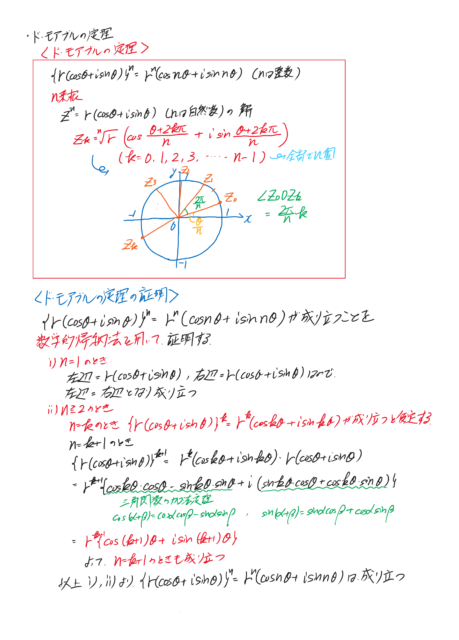 ・ド・モアブルの定理
<ド・モアブルの定理>
{r(cosθ+isinθ)}ⁿ = rⁿ(cosnθ+isinnθ) (nは整数)
n乗根
zⁿ = r(cosθ+isinθ) (nは自然数)の解
Zk = ⁿ√r (cos (θ+2kπ)/n + i sin (θ+2kπ)/n)
(k=0,1,2,3,……n-1)
y
Z₁
Z₀
∠Z₀OZk
= 2π/n k
2π/n
θ/n
-1
0
1
x
Zk
-1
<ド・モアブルの定理の証明>
{r(cosθ+isinθ)}ⁿ = rⁿ(cosnθ+isinnθ)が成り立つことを
数学的帰納法を用いて証明する
i) n=1のとき
左辺=r(cosθ+isinθ), 右辺=r(cosθ+isinθ)なので
左辺=右辺となり成り立つ
ii) n≧2のとき
n=kのとき {r(cosθ+isinθ)}ᵏ = rᵏ(coskθ+isinkθ)が成り立つと仮定する
n=k+1のとき
{r(cosθ+isinθ)}ᵏ⁺¹ = rᵏ(coskθ+isinkθ)・r(cosθ+isinθ)
= rᵏ⁺¹{coskθ・cosθ-sinkθ・sinθ+i(sinkθcosθ+coskθsinθ)}
三角関数の加法定理
cos(α+β)=cosαcosβ-sinαsinβ , sin(α+β)=sinαcosβ+cosαsinβ
= rᵏ⁺¹{cos(k+1)θ+isin(k+1)θ}
よって n=k+1のときも成り立つ
以上 i), ii)より {r(cosθ+isinθ)}ⁿ = rⁿ(cosnθ+isinnθ)は成り立つ